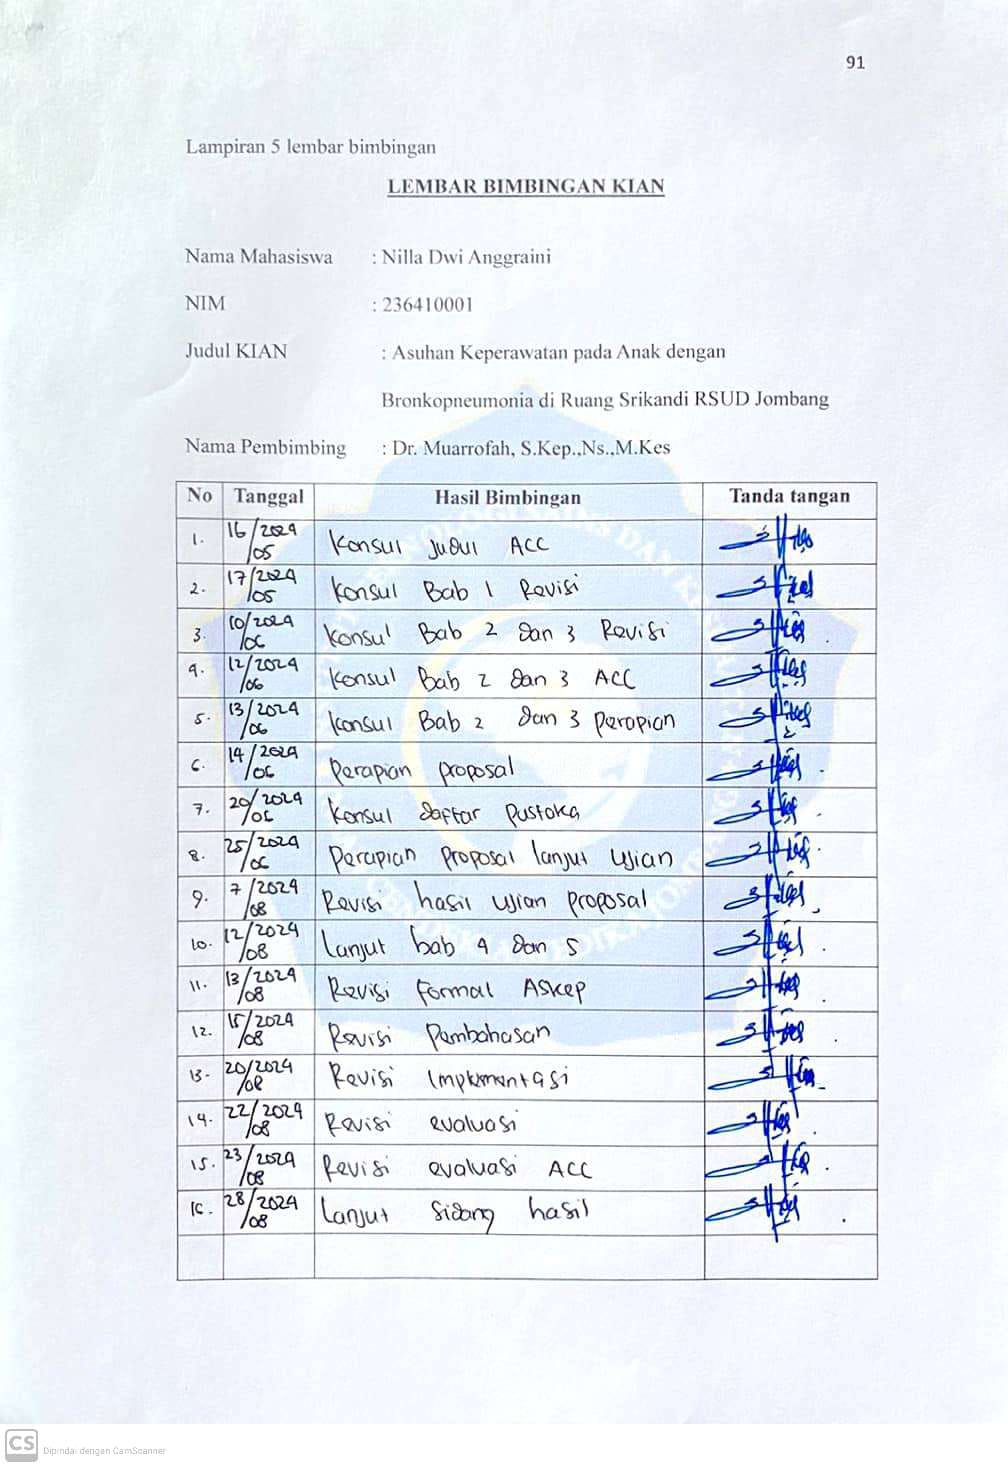 91
Lampiran 5 lembar bimbingan
LEMBAR BIMBINGAN KIAN
Nama Mahasiswa : Nilla Dwi Anggraini
NIM : 236410001
Judul KIAN : Asuhan Keperawatan pada Anak dengan
Bronkopneumonia di Ruang Srikandi RSUD Jombang
Nama Pembimbing : Dr. Muarrofah, S.Kep.,Ns.,M.Kes
No Tanggal Hasil Bimbingan Tanda tangan
1. 16/2024/05 Konsul Judul ACC
2. 17/2024/05 Konsul Bab 1 Revisi
3. 10/2024/06 Konsul Bab 2 dan 3 Revisi
4. 12/2024/06 Konsul Bab 2 dan 3 ACC
5. 13/2024/06 Konsul Bab 2 dan 3 perapian
6. 14/2024/06 Perapian proposal
7. 20/2024/06 Konsul daftar Pustaka
8. 25/2024/06 Perapian proposal lanjut ujian
9. 7/2024/08 Revisi hasil ujian proposal
10. 12/2024/08 Lanjut bab 4 dan 5
11. 13/2024/08 Revisi Formal ASKep
12. 15/2024/08 Revisi Pembahasan
13. 20/2024/08 Revisi Implementasi
14. 22/2024/08 Revisi evaluasi
15. 23/2024/08 Revisi evaluasi ACC
16. 28/2024/08 Lanjut Sidang hasil
CS Dipindai dengan CamScanner